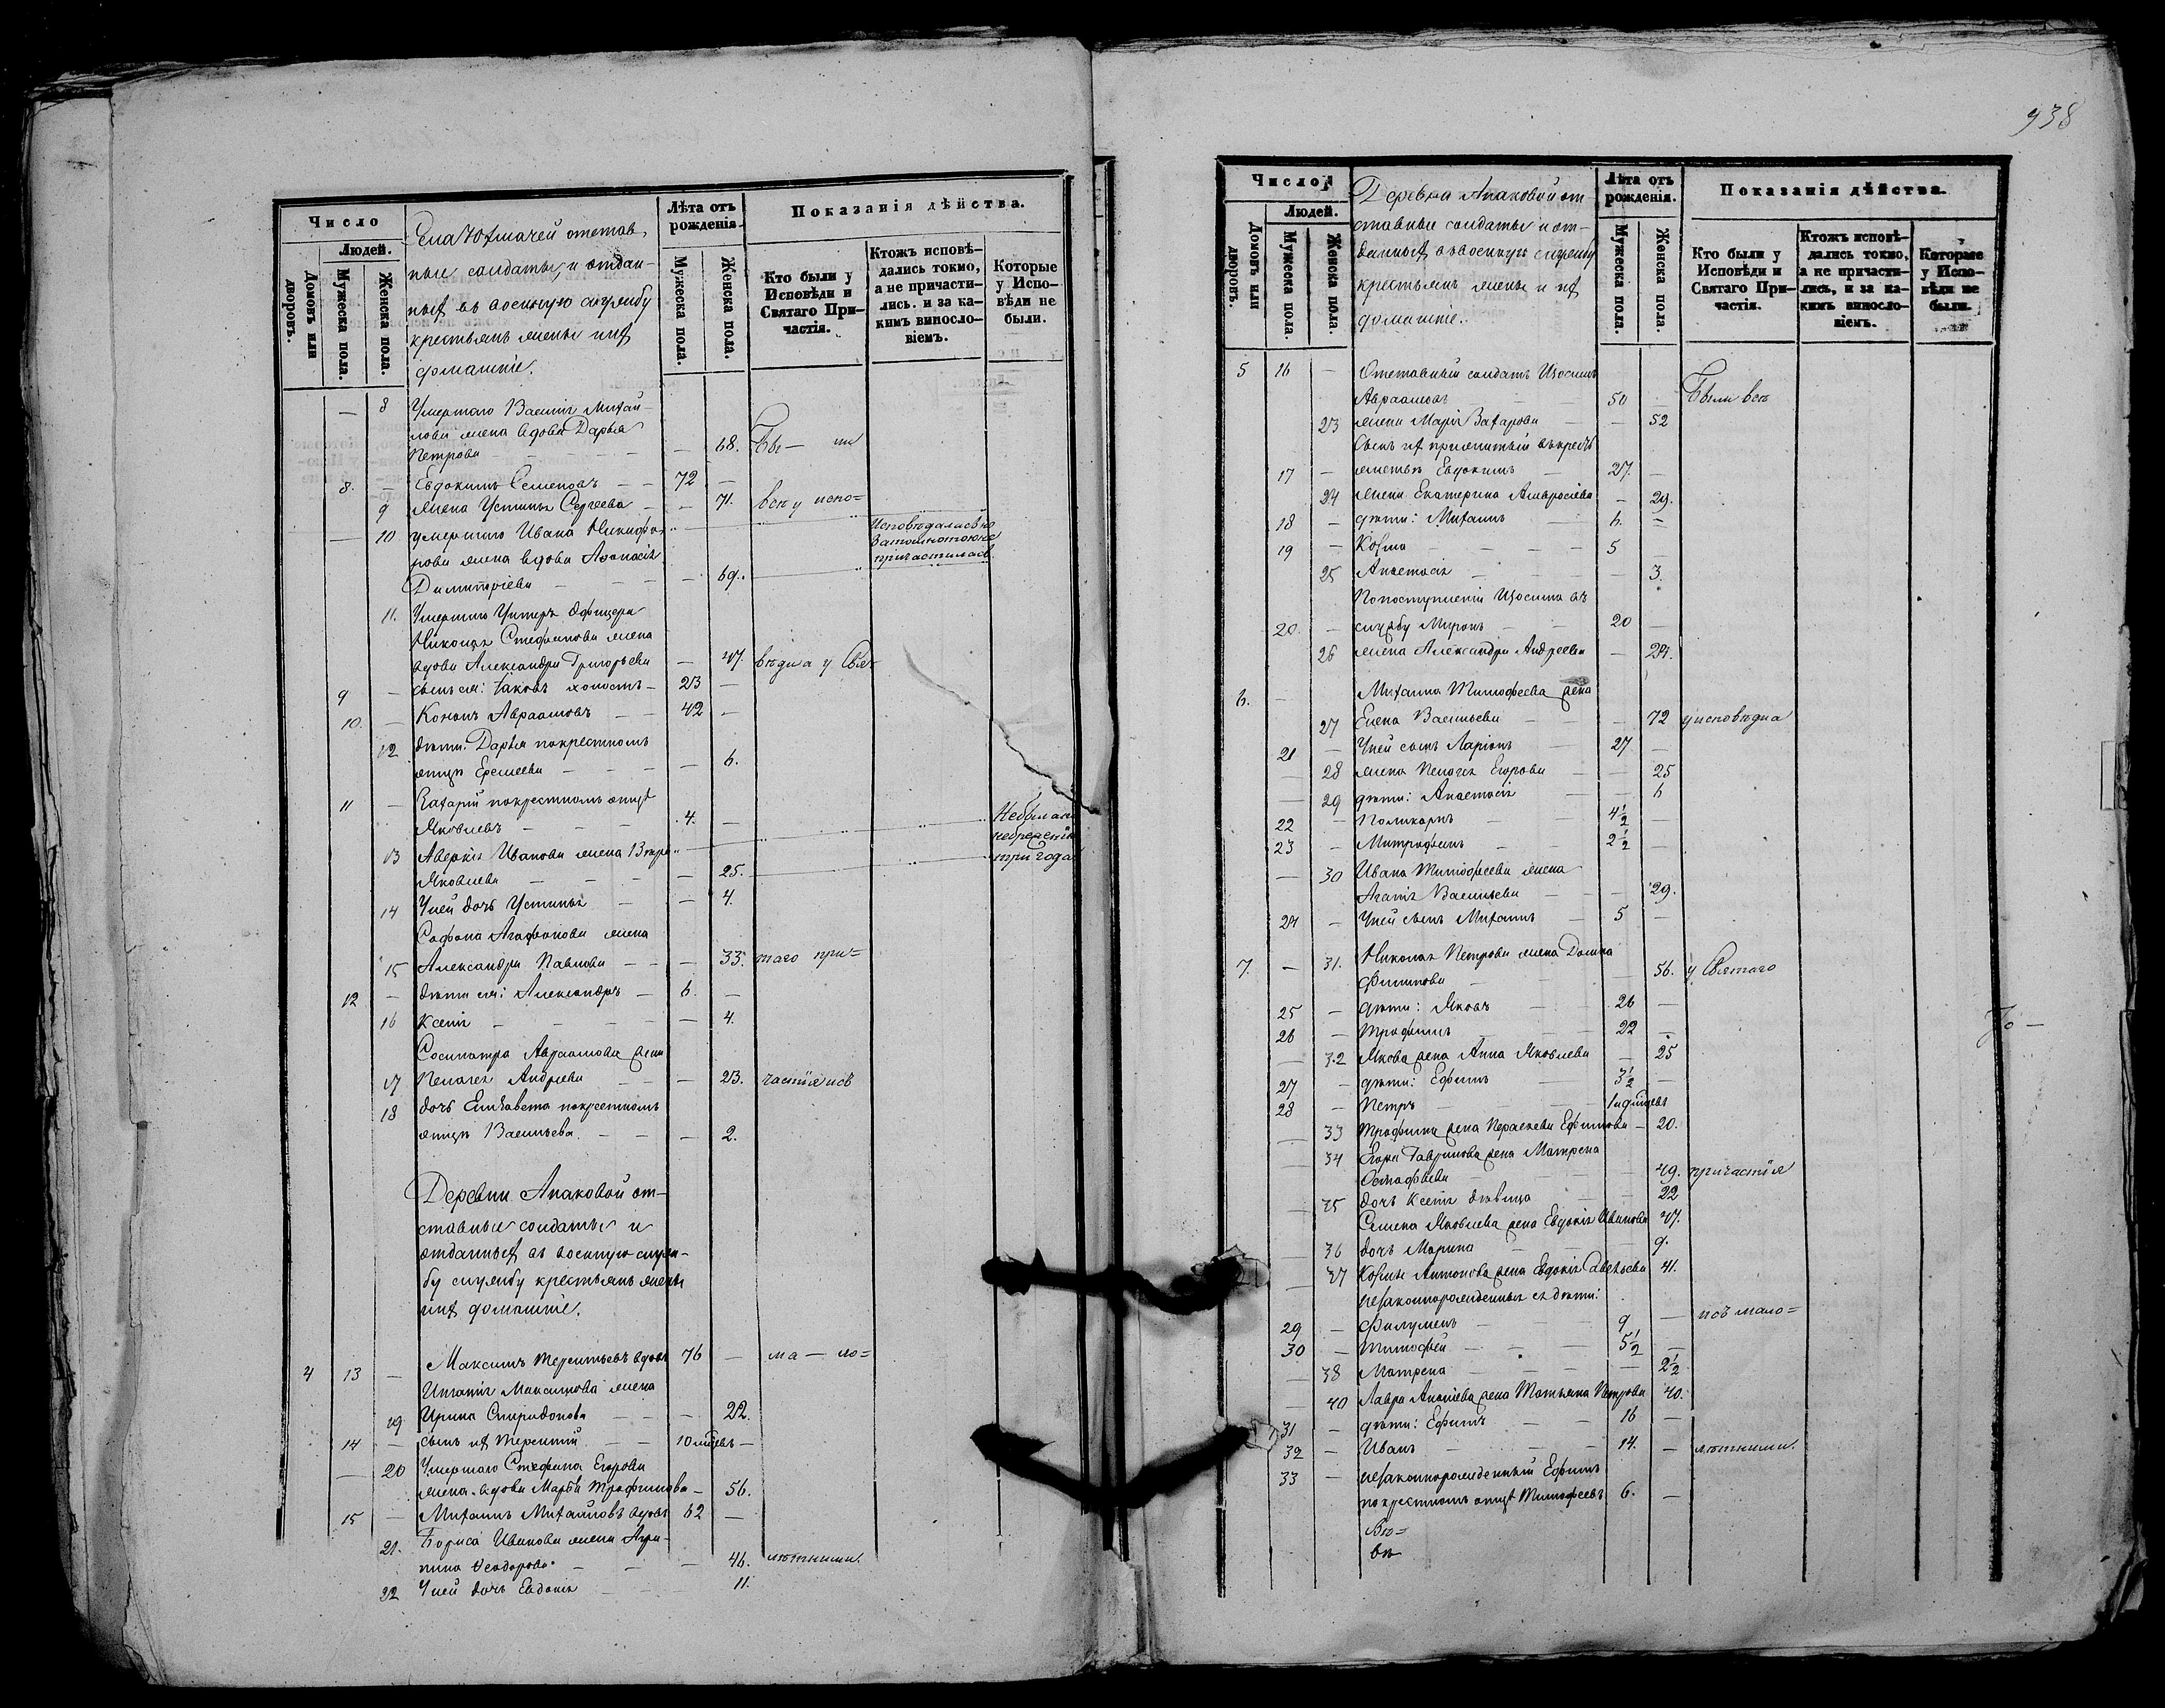 938
Число
Людей.
Домовъ или дворовъ.
Мужеска пола.
Женска пола.
Села Юкмачей отстав-
ные солдаты, и отдан-
ныхъ въ военную службу
крестьянъ жены и ихъ
домашніе.
Лѣта отъ рожденія.
Мужеска пола.
Женска пола.
Показанія дѣйства.
Кто были у Исповѣди и Святаго Причастія.
Ктожъ исповѣдались токмо, а не причастились. и за какимъ винословіемъ.
Которые у Исповѣди не были.
— 8 Умершаго Василія Михай-
лова жена вдова Дарья
Петрова — 68. Бы — ли
8. — Евдокимъ Семеновъ — 72 —
9 Жена Устинья Сергеева — — 71. всѣ у испо=
— 10 умершаго Ивана Никифо-
рова жена вдова Афанасія
Димитріева — — 69.
11. Умершаго Унтеръ Офицера
Николая Стефанова жена
вдова Александра Григорьева — 47. вѣди и у Свя-
9 — сынъ ея: Іаковъ холостъ — 23 —
10. — Кононъ Авраамовъ — 42 —
12 дѣти: Дарья по крестномъ
отцѣ Еремеева — — 6.
11 — Захарій по крестномъ отцѣ
Яковлевъ — 4. —
13 Авдокія Иванова жена
Яковлева — — 25.
три года
14 У ней дочь Устинья — — 4.
Софона Агафонова жена
15 Александра Павлова — — 33. таго при=
12 — дѣти ея: Александръ — 6. —
16 Ксенія — — 4.
Сосипатра Авраамова жена
17 Пелагея Андреева — — 23. частія исъ
18 дочь Елизавета по крестномъ
отцѣ Васильева. — — 2.
Деревни Апаковой от-
ставные солдаты и
отданныхъ въ военную служ-
бу службу крестьянъ жены
ихъ домашніе.
4 13 — Максимъ Терентьевъ вдовъ 76 — ма — ло=
Игнатія Максимова жена
19 Ирина Спиридонова — — 22.
14 — сынъ ихъ Терентій — 10 мѣсевъ —
— 20 Умершаго Стефана Егорова
жена вдова Марѳа Трофимова — 56.
15 — Михаилъ Михайловъ вдовъ 62 —
21. Бориса Иванова жена Агри-
пина Ѳеодорова — — 46. лѣтними.
22 У ней дочь Евдокія 11.
Число
Людей.
Домовъ или дворовъ.
Мужеска пола
Женска пола.
Деревни Апаковой от
ставные солдаты и от-
данныхъ въ военную службу
крестьянъ жены и ихъ
домашніе.
Лѣта отъ рожденія.
Мужеска пола.
Женска пола.
Показанія дѣйства.
Кто были у Исповѣди и Святаго Причастія.
Ктожъ исповѣдались токмо, а не причастились, и за какимъ винословіемъ.
Которые у Исповѣди не были.
5 16 — Отставный солдатъ Изосимъ
Авраамовъ — 50 — Были всѣ
23 жена Марія Захарова — — 52
Сынъ ихъ
17 — Евдокимъ — 27. —
24 жена Екатерина Амвросіева — 29.
18 — дѣти: Михаилъ — 6. —
19 — Козма — 5 —
25 Анастасія — — 3.
По поступленіи Изосима въ
20. — службу Миронъ — 20 —
26 жена Александра Андреева — 24.
6. — Михаила Тимофеева жена
27 Елена Васильева — — 72 у исповѣди и
21 — У ней сынъ Ларіонъ — 27 —
— 28 жена Пелагея Егорова — — 25
— 29 дѣти: Анастасія — — 6
22 — Поликарпъ — 4½ —
23 — Митрофанъ — 2½ —
— 30 Ивана Тимофеева жена
Агатія Васильева — — 29.
24 — У ней сынъ Михаилъ — 5 —
7. — 31. Николая Петрова жена Домна
Филипова — 56. у Святаго
25 — дѣти: Яковъ — 26 —
26 — Трофимъ — 22 —
— 32 Якова жена Анна Яковлева — 25
27 — дѣти: Ефимъ — 3½ —
28 — Петръ —
— 33 Трофима жена Параскева Ефимова — 20.
— 34 Егора Гаврилова жена Матрена
Остафьева — — 49. причастія
— 35 дочь Ксенія девица — — 22
Семена Яковлева жена Евдокія Иванова 47.
— 36 дочь Марина — — 9.
— 37 Козмы Антонова жена Евдокія Савельева 41.
незаконнорожденныя ея дѣти:
29 — Филумонъ — 9 — исъ мало=
30 — Тимофей — 5½ —
— 38 Матрена — — 2½
— 40 Лавра Ананіева жена Татьяна Петрова 40.
31 — дѣти: Ефимъ — 16 —
32 — Иванъ — 14. — лѣтними.
33 — незаконнорожденный Ефимъ
по крестномъ отцѣ Тимофеевъ 6. —